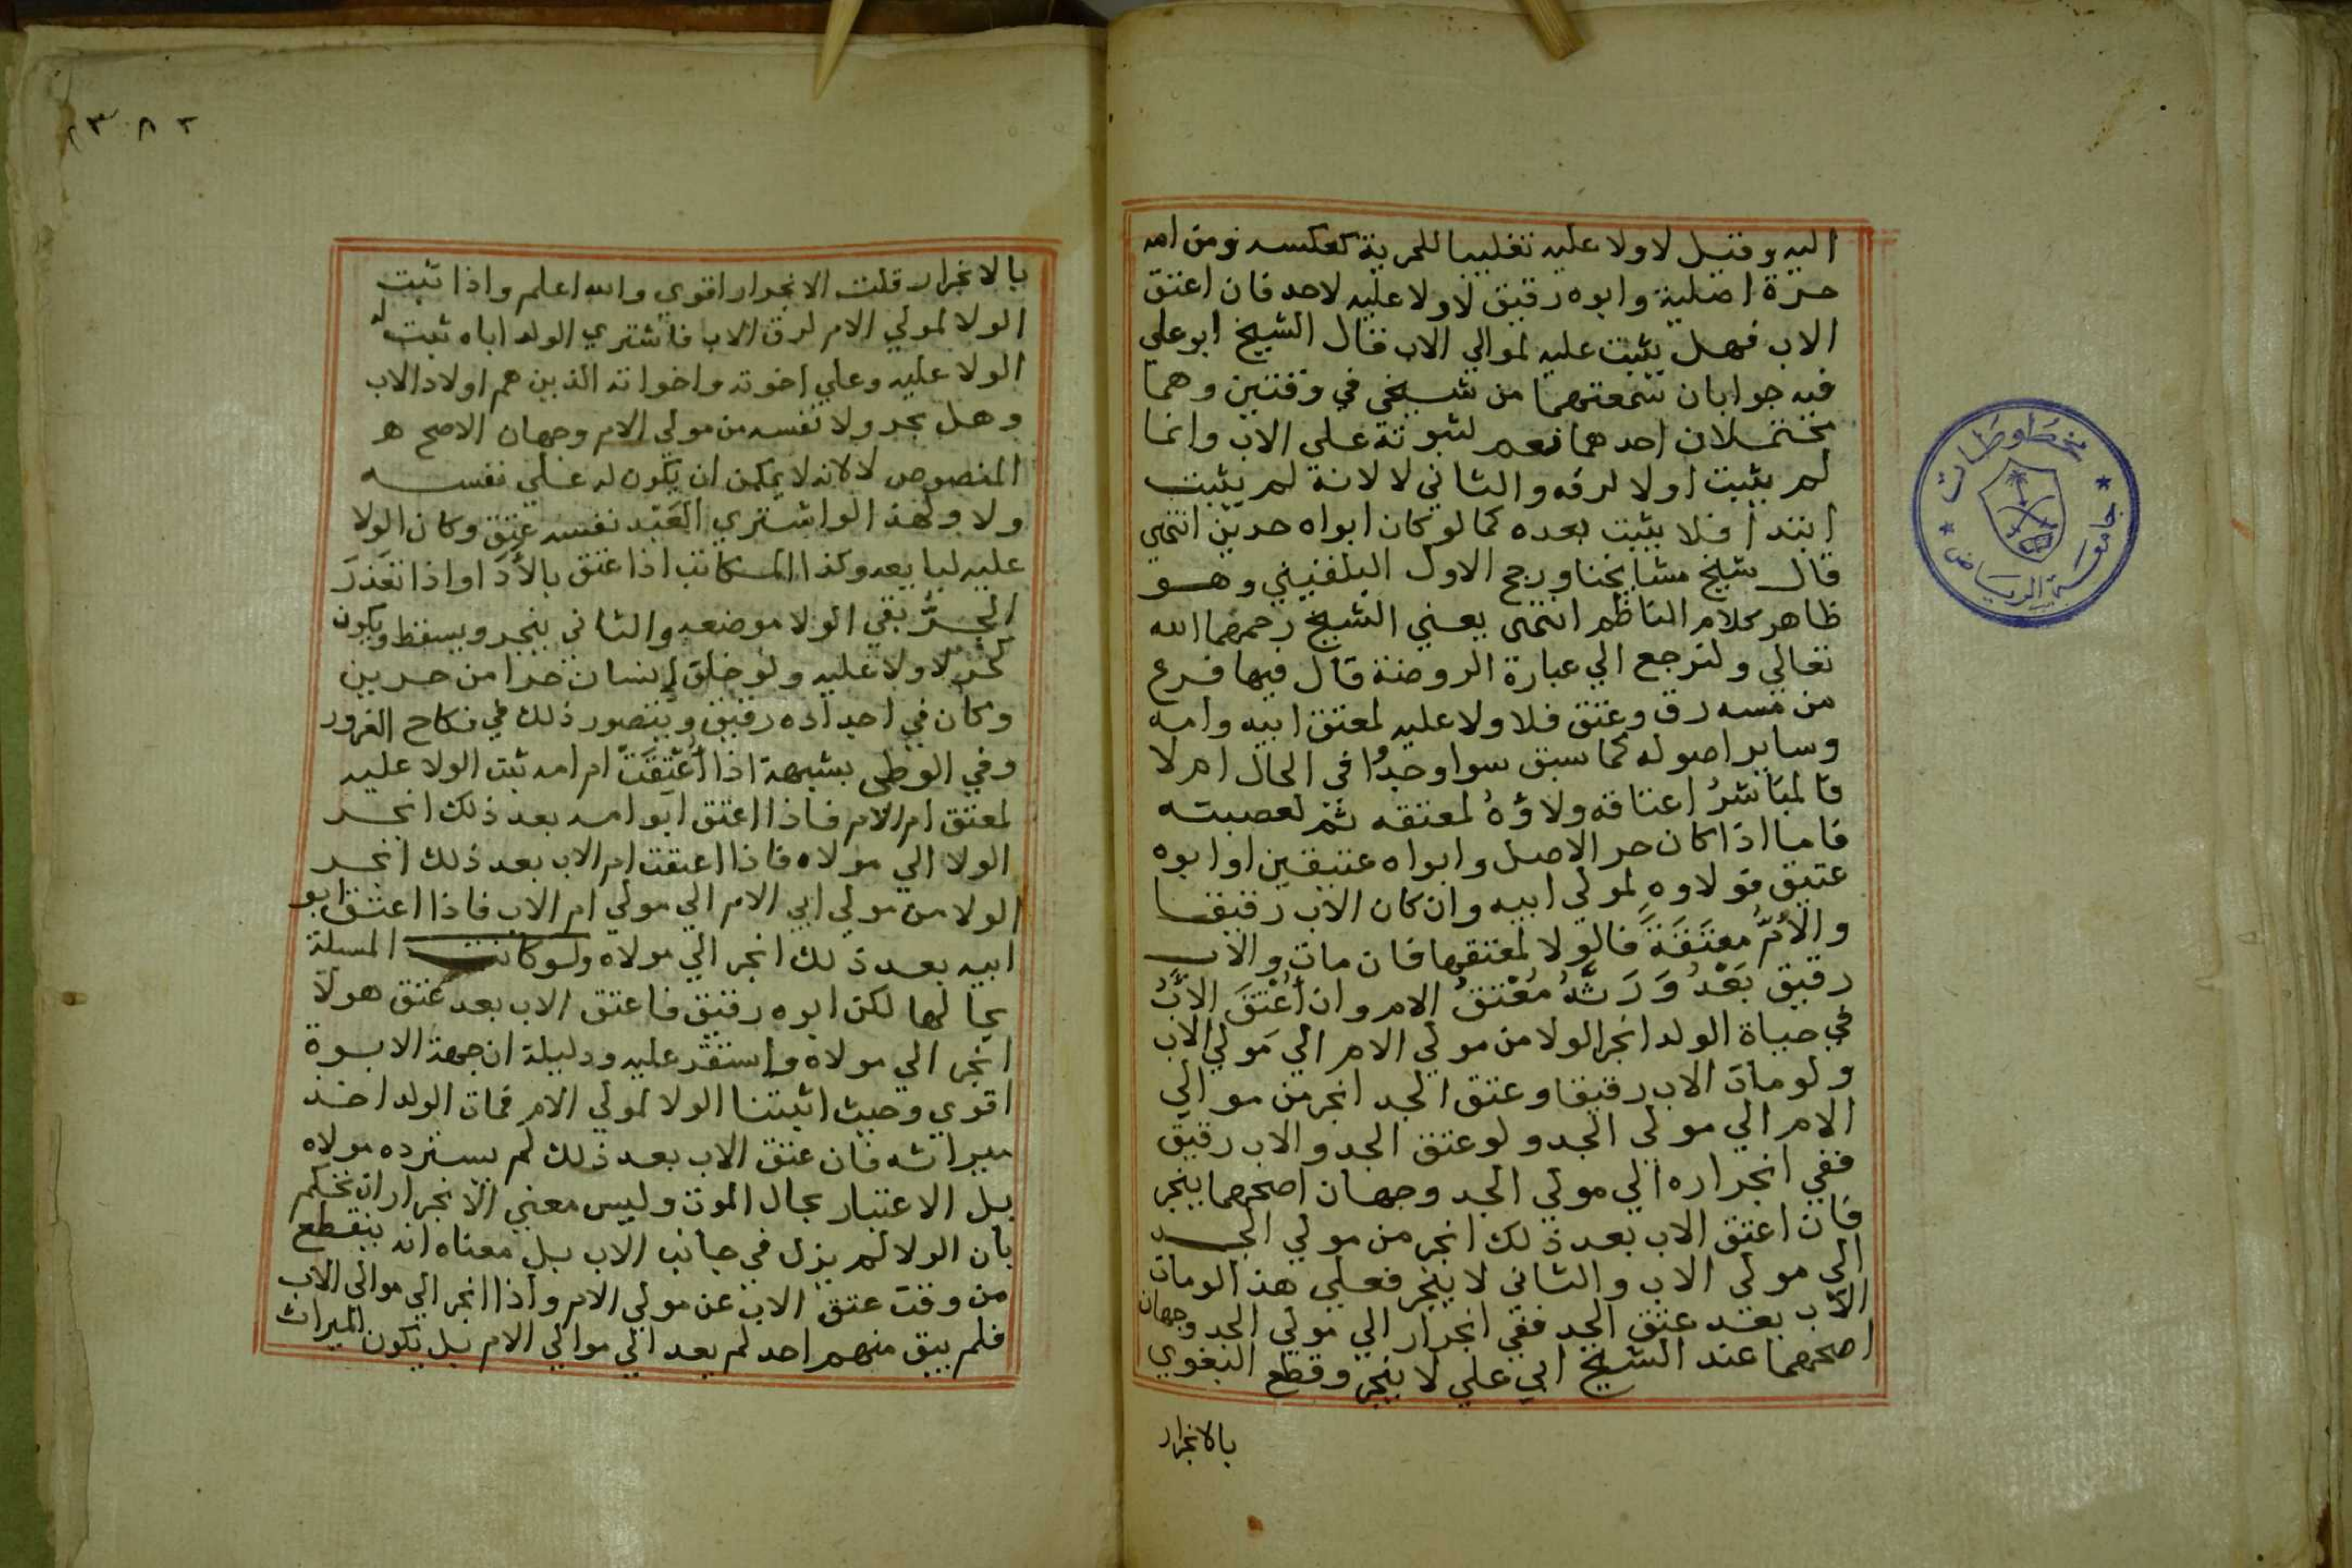 اليه وقيل لا ولا عليه تغليبا للحرية كعكسه ومن امه
حرة اصلية وابوه رقيق لا ولا عليه لاحد فان اعتق
الاب فهل يثبت عليه لموالي الاب فقال الشيخ ابو علي
فيه جوابان سمعتهما من شيخي في وقتين وهما
محتملان احدهما نعم لثبوته علي الاب وانما
لم يثبت اولا لرقه والثاني لا لانه لم يثبت
ابتدأ فلا يثبت بعده كما لو كان ابواه حرين انتهي
قال شيخ مشايخنا ورجح الاول البلقيني وهو
ظاهر كلام الناظم انتهي يعني الشيخ رحمهما الله
تعالي ولنرجع الي عبارة الروضة قال فيها فرع
من مسه رق وعتق فلا ولا عليه لمعتق ابيه وامه
وساير اصوله كما سبق سوا وجدوا في الحال ام لا
فالمباشر اعتاقه ولاؤه لمعتقه ثم لعصبته
فاما اذا كان حر الاصل وابواه عتيقين او ابوه
عتيق فولاوه لمولي ابيه وان كان الاب رقيقا
والأمُّ معتَقَةً فالولا لمعتقها فان مات والاب
رقيق بَعْدُ وَرَثَهُ مُعْتِقُ الام وان أُعْتِقَ الأبُ
في حياة الولد انجر الولا من مولي الام الي مَولي الاب
ولو مات الاب رقيقا وعتق الجد انجر من موالي
الام الي مولي الجد ولو عتق الجد والاب رقيق
ففي انجراره الي مولي الجد وجهان اصحهما ينجر
فان اعتق الاب بعد ذلك انجر من مولي الجد
الي مولي الاب والثاني لا ينجر فعلي هذا لو مات
الاب بعد عتق الجد ففي انجرار الي مولي الجد وجهان
اصحهما عند الشيخ ابي علي لا ينجر وقطع البغوي
بالانجرار
مخطوطات
جامعة الرياض
٣٨٢
بالانجرار قلت الانجرار اقوي والله اعلم واذا ثبت
الولا لمولي الام لرق الاب فاشتري الولد اباه ثبت له
الولا عليه وعلي اخوته واخواته الذين هم اولاد الاب
وهل يجر ولا نفسه من مولي الام وجهان الاصح هو
المنصوص لا لانه لا يمكن ان يكون له علي نفسه
ولا ولهذا لو اشتري العَبْد نفسه عتق وكان الولا
عليه لبايعه وكذا المكاتب اذا عتق بالأدا واذا تعَذر
الجرُّ بقي الولا موضعه والثاني ينجر ويسقط ويكون
كحر لا ولا عليه ولو خلق إنسان حرا من حرين
وكان في اجداده رقيق ويتصور ذلك في نكاح الغرور
وفي الوطي بشبهة اذا أُعْتِقَتْ ام امه ثبت الولا عليه
لمعتق ام الام فاذا اعتق ابو امه بعد ذلك انجر
الولا الي مولاه فاذا اعتقت ام الاب بعد ذلك انجر
الولا من مولي ابي الام الي مولي ام الاب فاذا اعتق ابو
ابيه بعد ذلك انجر الي مولاه ولو كانت المسلة
بحالها لكن ابوه رقيق فاعتق الاب بعد عتق هولا
انجر الي مولاه واستقر عليه ودليله ان جهة الابوة
اقوي وحيث اثبتنا الولا لمولي الام فمات الولد اخذ
ميراثه فان عتق الاب بعد ذلك لم يسترده مولاه
بل الاعتبار بحال الموت وليس معني الانجرار ان نحكم
بان الولا لم يزل في جانب الاب بل معناه انه ينقطع
من وقت عتق الاب عن مولي الام واذا انجر الي موالي الاب
فلم يبق منهم احد لم يعد الي موالي الام بل يكون الميراث